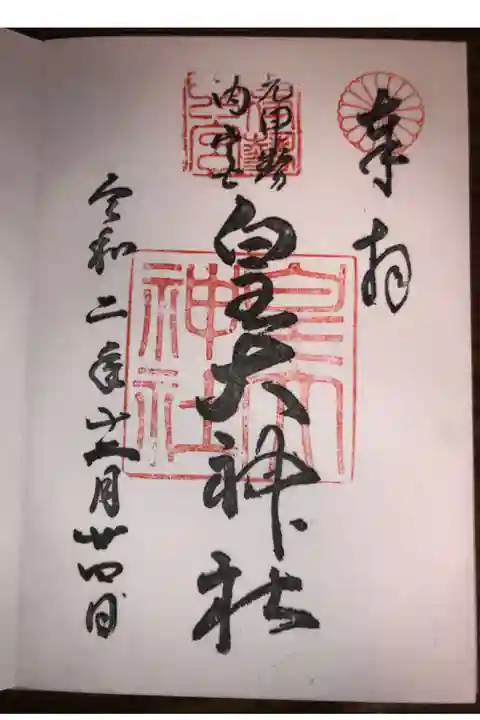 奉拝
元伊勢
内宮
皇大神社
皇大
神社
令和二年十一月廿四日